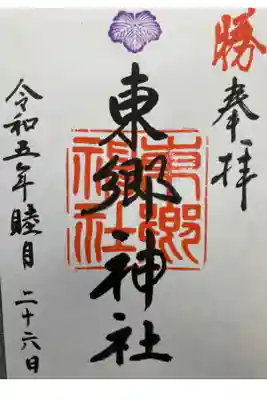 勝
奉拝
東郷神社
東郷神社
令和五年睦月二十六日